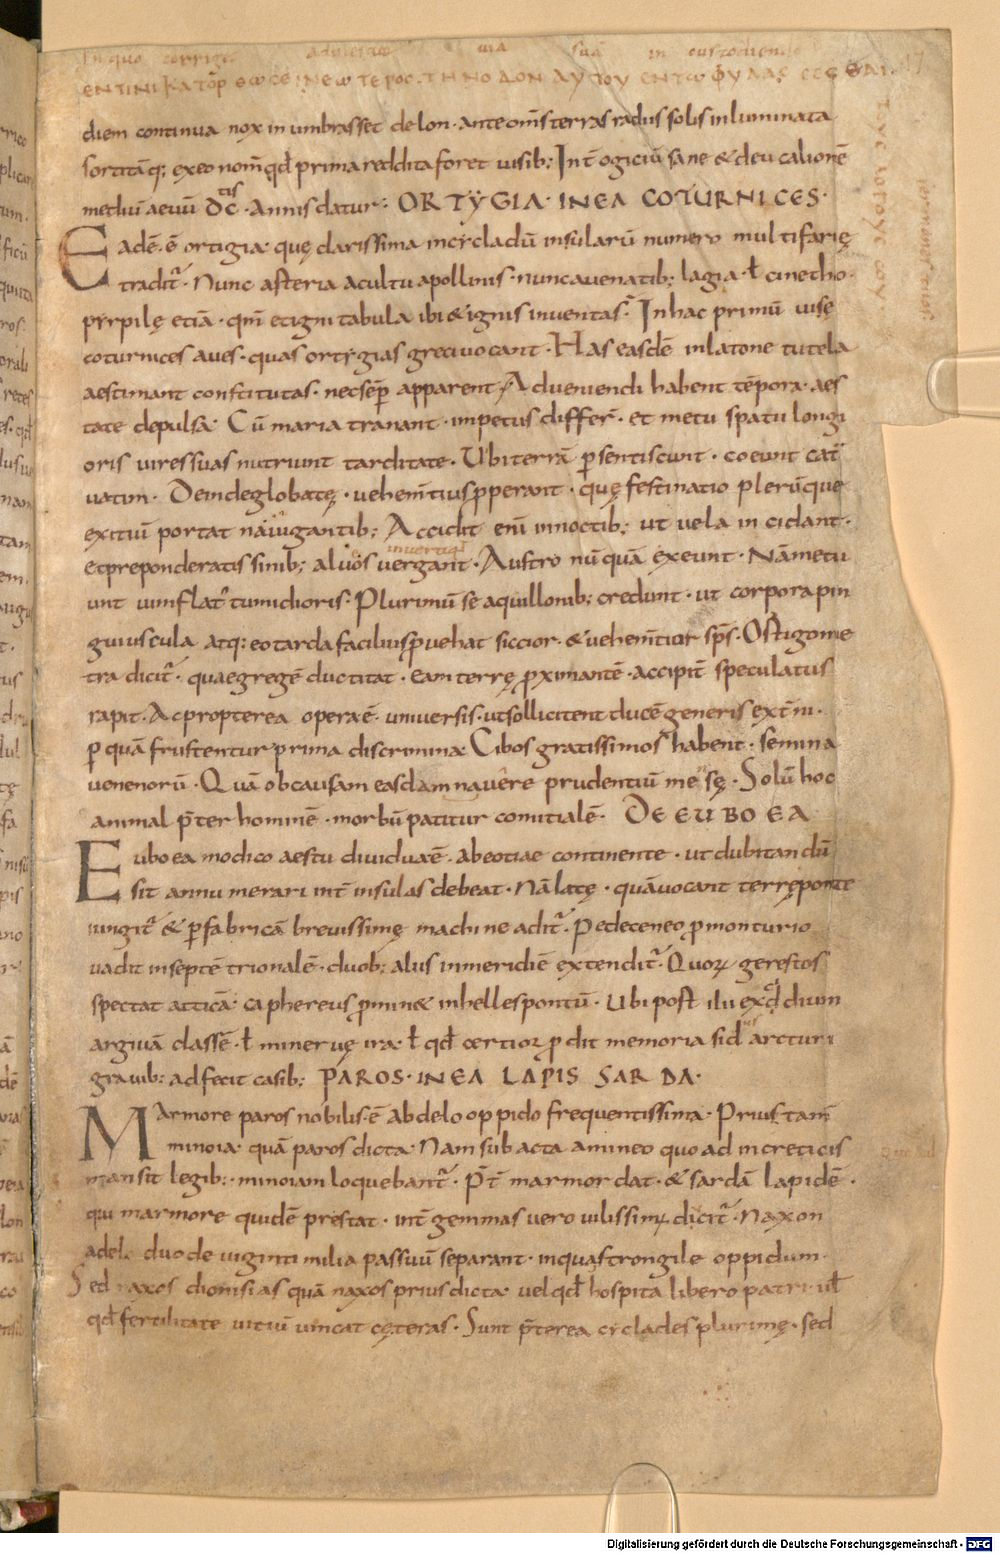 In quo corriget adulescens uia suā in custodiendo
ΕΝΤΙΝΙ ΚΑΤΟΡ ΘΩCΕΙ ΝΕΩΤΕΡΟC· ΤΗΝ ΟΔΟΝ ΑΥΤΟΥ ΕΝ ΤΩ ΦΥΛΑΣ
diem continua nox in umbrasset delon· ante om̄s terras radiis solis inluminata
sortitāq; ex eo nom̄ qđ prima reddita foret uisib; Int̄ ogiciū sane & deucalionē
mediu aeuū dc̄tis· Annis datur: ORTYGIA· IN EA COTURNICES·
Eadē· ē ortigia· quę clarissima incicladū insularū numero multifarię
tradit̄· Nunc asteria a cultu apollinis· nunc a uenatib; lagia· ł cinetho·
pyrpilę etiā· qm̄ et igni tabula ibi & ignis inuentas̄· In hac primū uisę
coturnices aues· quas ortygias greci uocant· Has easdē in latone tutela
aestimant constitutas· nec sēp apparent· Adueniendi habent tēpora· aes
tate depulsa· Cū maria tranant· impetus differt̄· et metu spatii longi
oris uires suas nutriunt tarditate· Ubi terrā p̄sentiscunt· coeunt cat̄
uatim· Deinde globatę· uehem̄tius pperant· quę festinatio plerūque
exitiū portat nauigantib; Accidit eni in noctib; ut uela incidant·
et preponderatis sinib; alueos uergant· Austro nūquā exeunt· Nā metu
unt uim flat; tumidioris· Plurimū se aquilonib; credunt· ut corpora pin
guiuscula atq; eo tarda facilius puehat siccior· & uehem̄tior sp̄s· Ostigome
tra dicit̄· quae gregē ductitat· eam terrę pximantē· accipit̄ speculatus
rapit· Ac propterea opera ē· uniuersis· ut sollicitent ducē generis ext̄ni·
p quā frustentur prima discrimina· Cibos gratissimos habent· semina
uenenorū· Quā ob causam eas damnauere prudentiū mensę· Solū hoc
animal p̄ter hominē· morbū patitur comitialē· DE EUBOEA
Euboea modico aestu diuidua ē· ab eotiae continente· ut dubitandū
sit an numerari int̄ insulas debeat· Nā latę· quā uocant terrę ponte
iungit̄ & p fabricā breuissimę machine adit̄· Pede ceneo pmonturio
uadit in septētrionalē· duob; aliis in meridiē extendit̄· Quoꝝ gerestos
spectat atticā· caphereus pmin& in hellespontū· Ubi post ilii excidium
argiuā classē· ł mineruę ira· ł qđ certior pdit memoria sidus arcturi
grauib; adfecit casib; PAROS· IN EA LAPIS SARDA·
Marmore paros nobilis ē ab delo oppido frequentissima· Prius tam̄
minoia· quā paros dicta· Nam subacta a mineo quoad in creticis
mansit legib;· minoiam loquebant̄· P̄t̄ marmor dat· & sardā lapidē·
qui marmore quidē prestat· int̄ gemmas uero uilissim; dicit̄· Naxon
a delo duo de uiginti milia passuū separant· in qua strongile oppidum·
Sed naxos dionisias quā naxos prius dicta· uel qđ hospita libero patri uł
qđ fertilitate uitiū uincat cęteras· Sunt p̄terea cyclades plurimę· sed
Digitalisierung gefördert durch die Deutsche Forschungsgemeinschaft - DFG